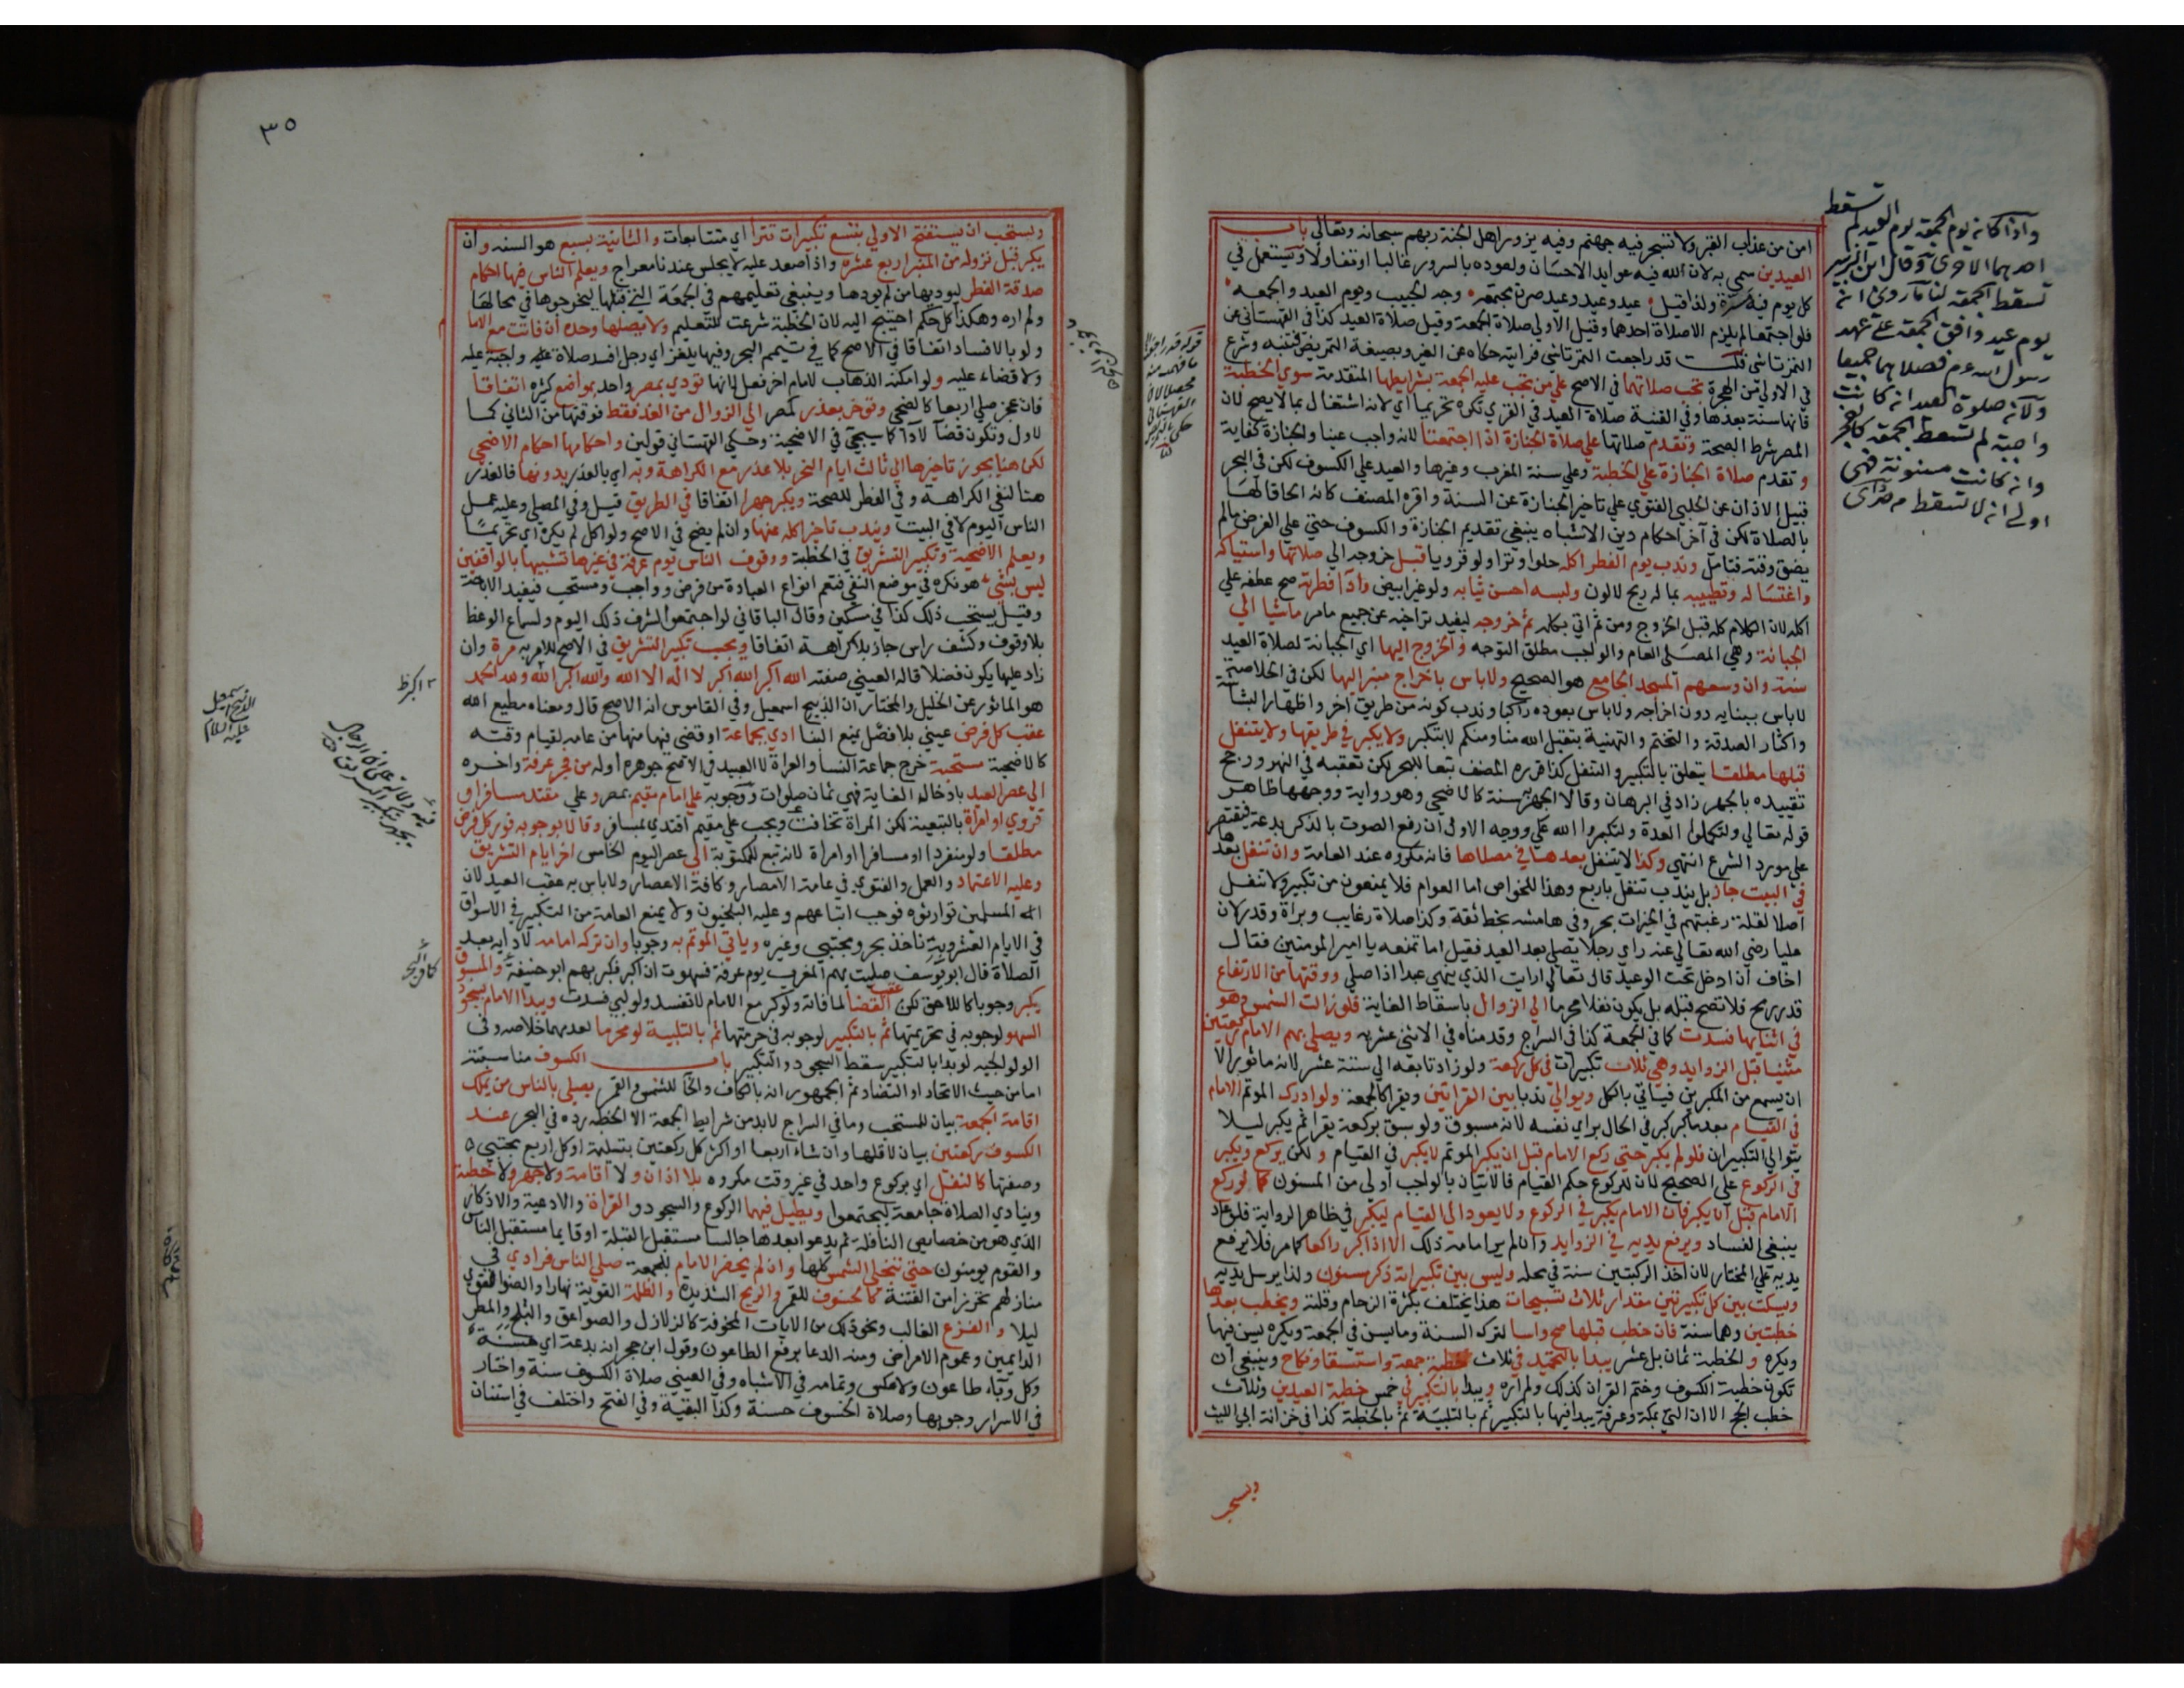 امن من عذاب القبر ولا تسجر فيه جهنم وفيه يزور اهل الجنة ربهم سبحانه وتعالى باب
العيدين سمي به لان الله فيه عوايد الاحسان ولعوده بالسرور غالبا او تفاولا ويستعمل في
كل يوم فيه مسرة ولذا قيل عيد وعيد وعيد صرن مجتمعه وجه الحبيب ويوم العيد والجمعه
فلو اجتمعا لم يلزم الا صلاة احدهما وقيل الاولى صلاة الجمعة وقيل صلاة العيد كذا في القهستاني عن
التمرتاشي قلت قد راجعت التمرتاشي فرايته حكاه عن الغير وبصيغة التمريض فتنبه وشرع
في الاولى من الهجرة تجب صلاتهما في الاصح على من تجب عليه الجمعة بشرايطها المتقدمة سوى الخطبة
فانها سنة بعدها وفي القنية صلاة العيد في القرى تكره تحريما اي لانه اشتغال بما لا يصح لان
المصر شرط الصحة وتقدم صلاتها على صلاة الجنازة اذا اجتمعتا لانه واجب عينا والجنازة كفاية
وتقدم صلاة الجنازة على الخطبة وعلى سنة المغرب وغيرها والعيد على الكسوف لكن في البحر
قبيل الاذان عن الحلبي الفتوى على تاخير الجنازة عن السنة واقره المصنف كانه الحاقا لها
بالصلاة لكن في آخر احكام دين الاشباه ينبغي تقديم الجنازة والكسوف حتى على الفرض مالم
يضق وقته فتامل وندب يوم الفطر اكله حلوا وترا ولو قرويا قبل خروجه الى صلاتها واستياكه
واغتساله وتطييبه بما له ريح لا لون ولبسه احسن ثيابه ولو غير ابيض واداء فطرته صح عطفه على
اكله لان الكلام كله قبل الخروج ومن ثم اتي بكلمة ثم خروجه ليفيد تراخيه عن جميع مامر ماشيا الى
الجبانة وهي المصلى العام والواجب مطلق التوجه والخروج اليها اي الجبانة لصلاة العيد
سنة وان وسعهم المسجد الجامع هو الصحيح ولا باس باخراج منبر اليها لكن في الخلاصة
لا باس ببنايه دون اخراجه ولا باس بعوده راكبا وندب كونه من طريق اخر واظهار البشاشة
واكثار الصدقة والتختم والتهنية بتقبل الله منا ومنكم لا تنكر ولا يكبر في طريقها ولا يتنفل
قبلها مطلقا يتعلق بالتكبير والتنفل كذا قرره المصنف تبعا للبحر لكن تعقبه في النهر ورجح
تقييده بالجهر زاد في البرهان وقالا الجهر به سنة كالاضحى وهو رواية ووجهها ظاهر
قوله تعالى ولتكملوا العدة ولتكبروا الله على ووجه الاول ان رفع الصوت بالذكر بدعة فيقتصر
على مورد الشرع انتهى وكذا لا يتنفل بعدها في مصلاها فانه مكروه عند العامة وان تنفل بعدها
في البيت جاز بل يندب تنفل باربع وهذا للخواص اما العوام فلا يمنعون من تكبير ولا تنفل
اصلا لقلة رغبتهم في الخيرات بحر وفي هامشه بخط ثقة وكذا صلاة رغايب وبراة وقدر لان
عليا رضي الله تعالى عنه راي رجلا يصلي بعد العيد فقيل اما تمنعه يا امير المومنين فقال
اخاف ان ادخل تحت الوعيد قال تعالى ارايت الذي ينهى عبدا اذا صلى ووقتها من الارتفاع
قدر رمح فلا تصح قبله بل يكون نفلا محرما الى الزوال باسقاط الغاية فلو زالت الشمس وهو
في اثنايها فسدت كما في الجمعة كذا في السراج وقدمناه في الاثني عشرية ويصلي بهم الامام ركعتين
مثنيا قبل الزوايد وهي ثلاث تكبيرات في كل ركعة ولو زاد تابعه الى ستة عشر لانه ماثور الا
ان يسمع من المكبرين فياتي بالكل ويوالي ندبا بين القراتين ويقرا كالجمعة ولو ادرك الموتم الامام
في القيام بعد ما كبر كبر في الحال براي نفسه لانه مسبوق ولو سبق بركعة يقرا ثم يكبر ليلا
يتوالى التكبيران فلو لم يكبر حتى ركع الامام قبل ان يكبر الموتم لا يكبر في القيام ولكن يركع ويكبر
في الركوع على الصحيح لان للركوع حكم القيام فالاتيان بالواجب اولى من المسنون كما لو ركع
الامام قبل ان يكبر فان الامام يكبر في الركوع ولا يعود الى القيام ليكبر في ظاهر الرواية فلو عاد
ينبغي الفساد ويرفع يديه في الزوايد وان لم ير امامه ذلك الا اذا كبر راكعا كما مر فلا يرفع
يديه على المختار لان اخذ الركبتين سنة في محله وليس بين تكبيراته ذكر مسنون ولذا يرسل يديه
ويسكت بين كل تكبيرتين مقدار ثلاث تسبيحات هذا يختلف بكثرة الزحام وقلته ويخطب بعدها
خطبتين وهما سنة فان خطب قبلها صح واسا لترك السنة وما يسن في الجمعة ويكره يسن فيها
ويكره والخطبة ثمان بل عشر يبدا بالتحميد في ثلاث خطبة جمعة واستسقا ونكاح وينبغي ان
تكون خطبة الكسوف وختم القران كذلك ولم اره ويبدا بالتكبير في خمس خطبة العيدين وثلاث
خطب الحج الا ان التي بمكة وعرفة يبدا فيها بالتكبير ثم بالتلبية ثم بالخطبة كذا في خزانة ابي الليث
تسقط
واذا كانه يوم الجمعة يوم العيد لم
احدهما الاخرى وقال ابن الزبير
تسقط الجمعة لنا ما روى انه
يوم عيد وافق الجمعة على عهد
رسول الله عم فصلاهما جميعا
ولانه صلوة العيد انه كانت
واجبة لم تسقط الجمعة كالفجر
وانه كانت مسنونة فهي
اولى انه لا تسقط
ويستحب ان يستفتح الاولى بتسع تكبيرات تترا اي متتابعات والثانية بسبع هو السنه وان
يكبر قبل نزوله من المنبر اربع عشره واذا صعد عليه لا يجلس عندنا معراج ويعلم الناس فيها احكام
صدقة الفطر ليوديها من لم يودها وينبغي تعليمهم في الجمعة التي قبلها ليخرجوها في محالها
ولم اره وهكذا كل حكم احتيج اليه لان الخطبة شرعت للتعليم ولا يصلها وحده ان فاتت مع الاما م
ولو بالافساد اتفاقا في الاصح كما في تيمم البحر وفيها يلغز اي رجل افسد صلاة واجبة عليه
ولا قضاء عليه ولو امكنه الذهاب لامام اخر فعل لانها تودي بمصر واحد بمواضع كثيره اتفاقا
فان عجز صلى اربعا كالضحى وتوخر بعذر كمطر الى الزوال من الغد فقط فوقتها من الثاني كما
لاول وتكون قضا لا ادا كما سيجي في الاضحية وحكي القهستاني قولين واحكامها احكام الاضحى
لكن هنا يجوز تاخيرها الى ثالث ايام النحر بلا عذر مع الكراهة وبه اي بالعذر بدونها فالعذر
هنا لنفي الكراهة وفي الفطر للصحة ويكبر جهرا اتفاقا في الطريق قيل وفي المصلى وعليه عمل
الناس اليوم لا في البيت ويندب تاخير اكله عنها وان لم يضح في الاصح ولو اكل لم يكره اي تحريما
ويعلم الاضحية وتكبير التشريق في الخطبة ووقوف الناس يوم عرفة في غيرها تشبيها بالواقفين
ليس بشيء هو نكره في موضع النفي فتعم انواع العبادة من فرض وواجب ومستحب فيفيد الاباحة
وقيل يستحب ذلك كذا في مسكين وقال الباقاني لو اجتمعوا لشرف ذلك اليوم ولسماع الوعظ
بلا وقوف وكشف راس جاز بلا كراهة اتفاقا ويجب تكبير التشريق في الاصح للامر به مرة وان
زاد عليها يكون فضلا قاله العيني صفته الله اكبر الله اكبر لا اله الا الله والله اكبر الله ولله الحمد
هو الماثور عن الخليل والمختار ان الذبيح اسمعيل وفي القاموس انه الاصح قال ومعناه مطيع الله
عقب كل فرض عيني بلا فصل يمنع البنا ادي بجماعة او قضى فيها منها من عامه لقيام وقته
كالاضحية مستحبة خرج جماعة النسا والعراة لا العبيد في الاصح جوهره اوله من فجر عرفة واخره
الى عصر العيد بادخال الغاية فهي ثمان صلوات ووجوبه على امام مقيم بمصر وعلى مقتد مسافر او
قروي او امراة بالتبعية لكن المراة تخافت ويجب على مقيم اقتدى بمسافر وقالا بوجوبه فور كل فرض
مطلقا ولو منفردا او مسافرا او امراة لانه تبع للمكتوبة الى عصر اليوم الخامس اخر ايام التشريق
وعليه الاعتماد والعمل والفتوى في عامة الامصار وكافة الاعصار ولا باس به عقب العيد لان
المسلمين توارثوه فوجب اتباعهم وعليه البلخيون ولا يمنع العامة من التكبير في الاسواق
في الايام العشر وبه ناخذ بحر ومجتبى وغيره وياتي الموتم به وجوبا وان تركه امامه لادايه بعد
الصلاة قال ابو يوسف صليت بهم المغرب يوم عرفة فسهوت ان اكبر فكبر بهم ابو حنيفة والمسبوق
يكبر وجوبا كاللاحق لكن عقب القضا لما فاته ولو كبر مع الامام لا تفسد ولو لبى فسدت ويبدا الامام بسجود
السهو لوجوبه في تحريمتها ثم بالتكبير لوجوبه في حرمتها ثم بالتلبية لو محرما لعدمهما خلاصه وفي
الولوالجيه لو بدا بالتكبير سقط السجود والتكبير باب الكسوف مناسبته
اما من حيث الاتحاد او التضاد ثم الجمهور انه بالكاف والخا للشمس والقمر يصلي بالناس من يملك
اقامة الجمعة بيان للمستحب وما في السراج لا بد من شرايط الجمعة الا الخطبه رده في البحر عند
الكسوف ركعتين بيان لاقلها وان شاء اربعا او اكثر كل ركعتين بتسليمة او كل اربع مجتبى
وصفتها كالنفل اي بركوع واحد في غير وقت مكروه بلا اذان ولا اقامة ولا جهر ولا خطبة
وينادي الصلاة جامعة ليجتمعوا ويطيل فيها الركوع والسجود والقراة والادعية والاذكار
الذي هو من خصايص النافلة ثم يدعوا بعدها جالسا مستقبل القبلة او قايما مستقبل الناس
والقوم يومنون حتى تنجلي الشمس كلها وان لم يحضر الامام للجمعة صلى الناس فرادى في
منازلهم تحرزا من الفتنة كالخسوف للقمر والريح الشديدة والظلمة القوية نهارا والضوا القوي
ليلا والفزع الغالب ونحو ذلك من الايات المخوفة كالزلازل والصواعق والثلج والمطر
الدايمين وعموم الامراض ومنه الدعا برفع الطاعون وقول ابن حجر انه بدعة اي حسنة
وكل وباء طاعون ولا عكس وتمامه في الاشباه وفي العيني صلاة الكسوف سنة واختار
في الاسرار وجوبها وصلاة الخسوف حسنة وكذا البقية وفي الفتح واختلف في استنان
٣٥